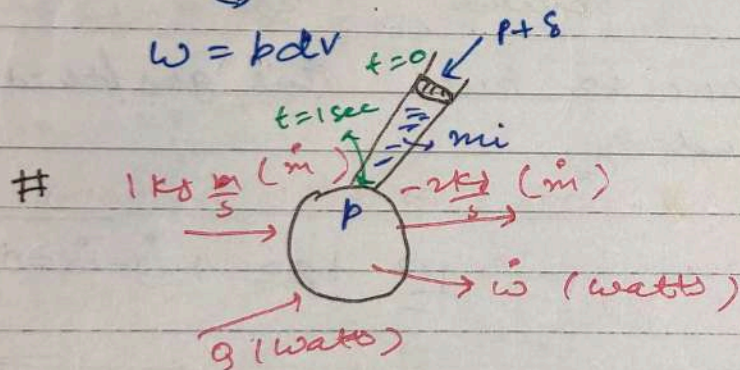 w = pdv
t=0
p+δ
t=1sec
mi
# 1 kg m/s (ṁ)
-2kg/s (ṁ)
p
ẇ (watts)
Q (watts)